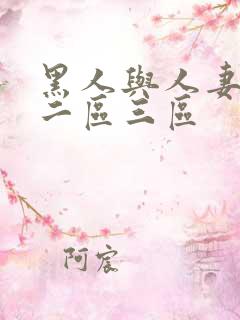 黑人與人妻
二區三區
阿宸